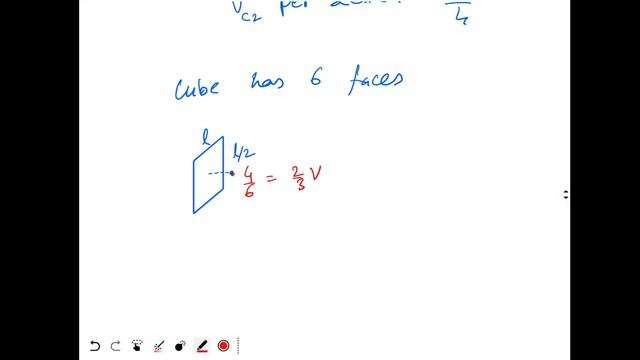 V_C2 per
4
Cube has 6 faces
l
l/2
4/6 = 2/3 V